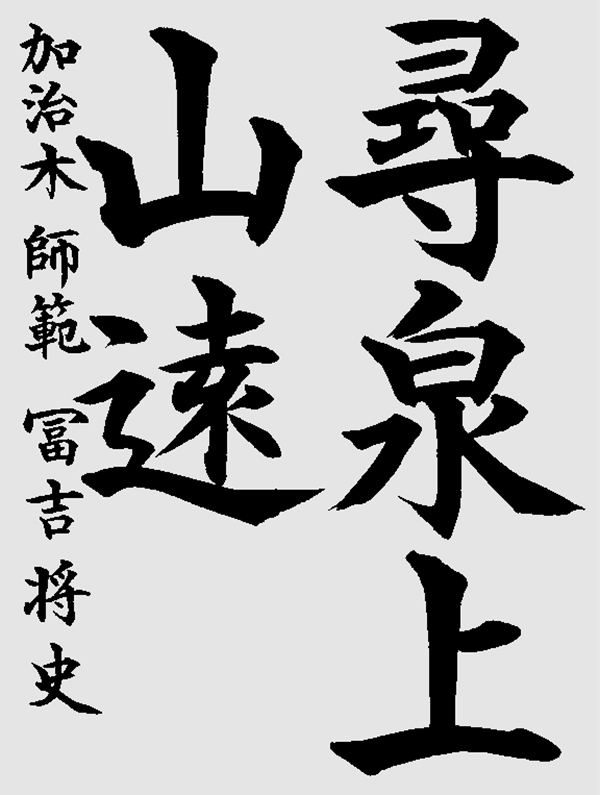 尋泉上
山遠
加治木 師範 冨吉将史